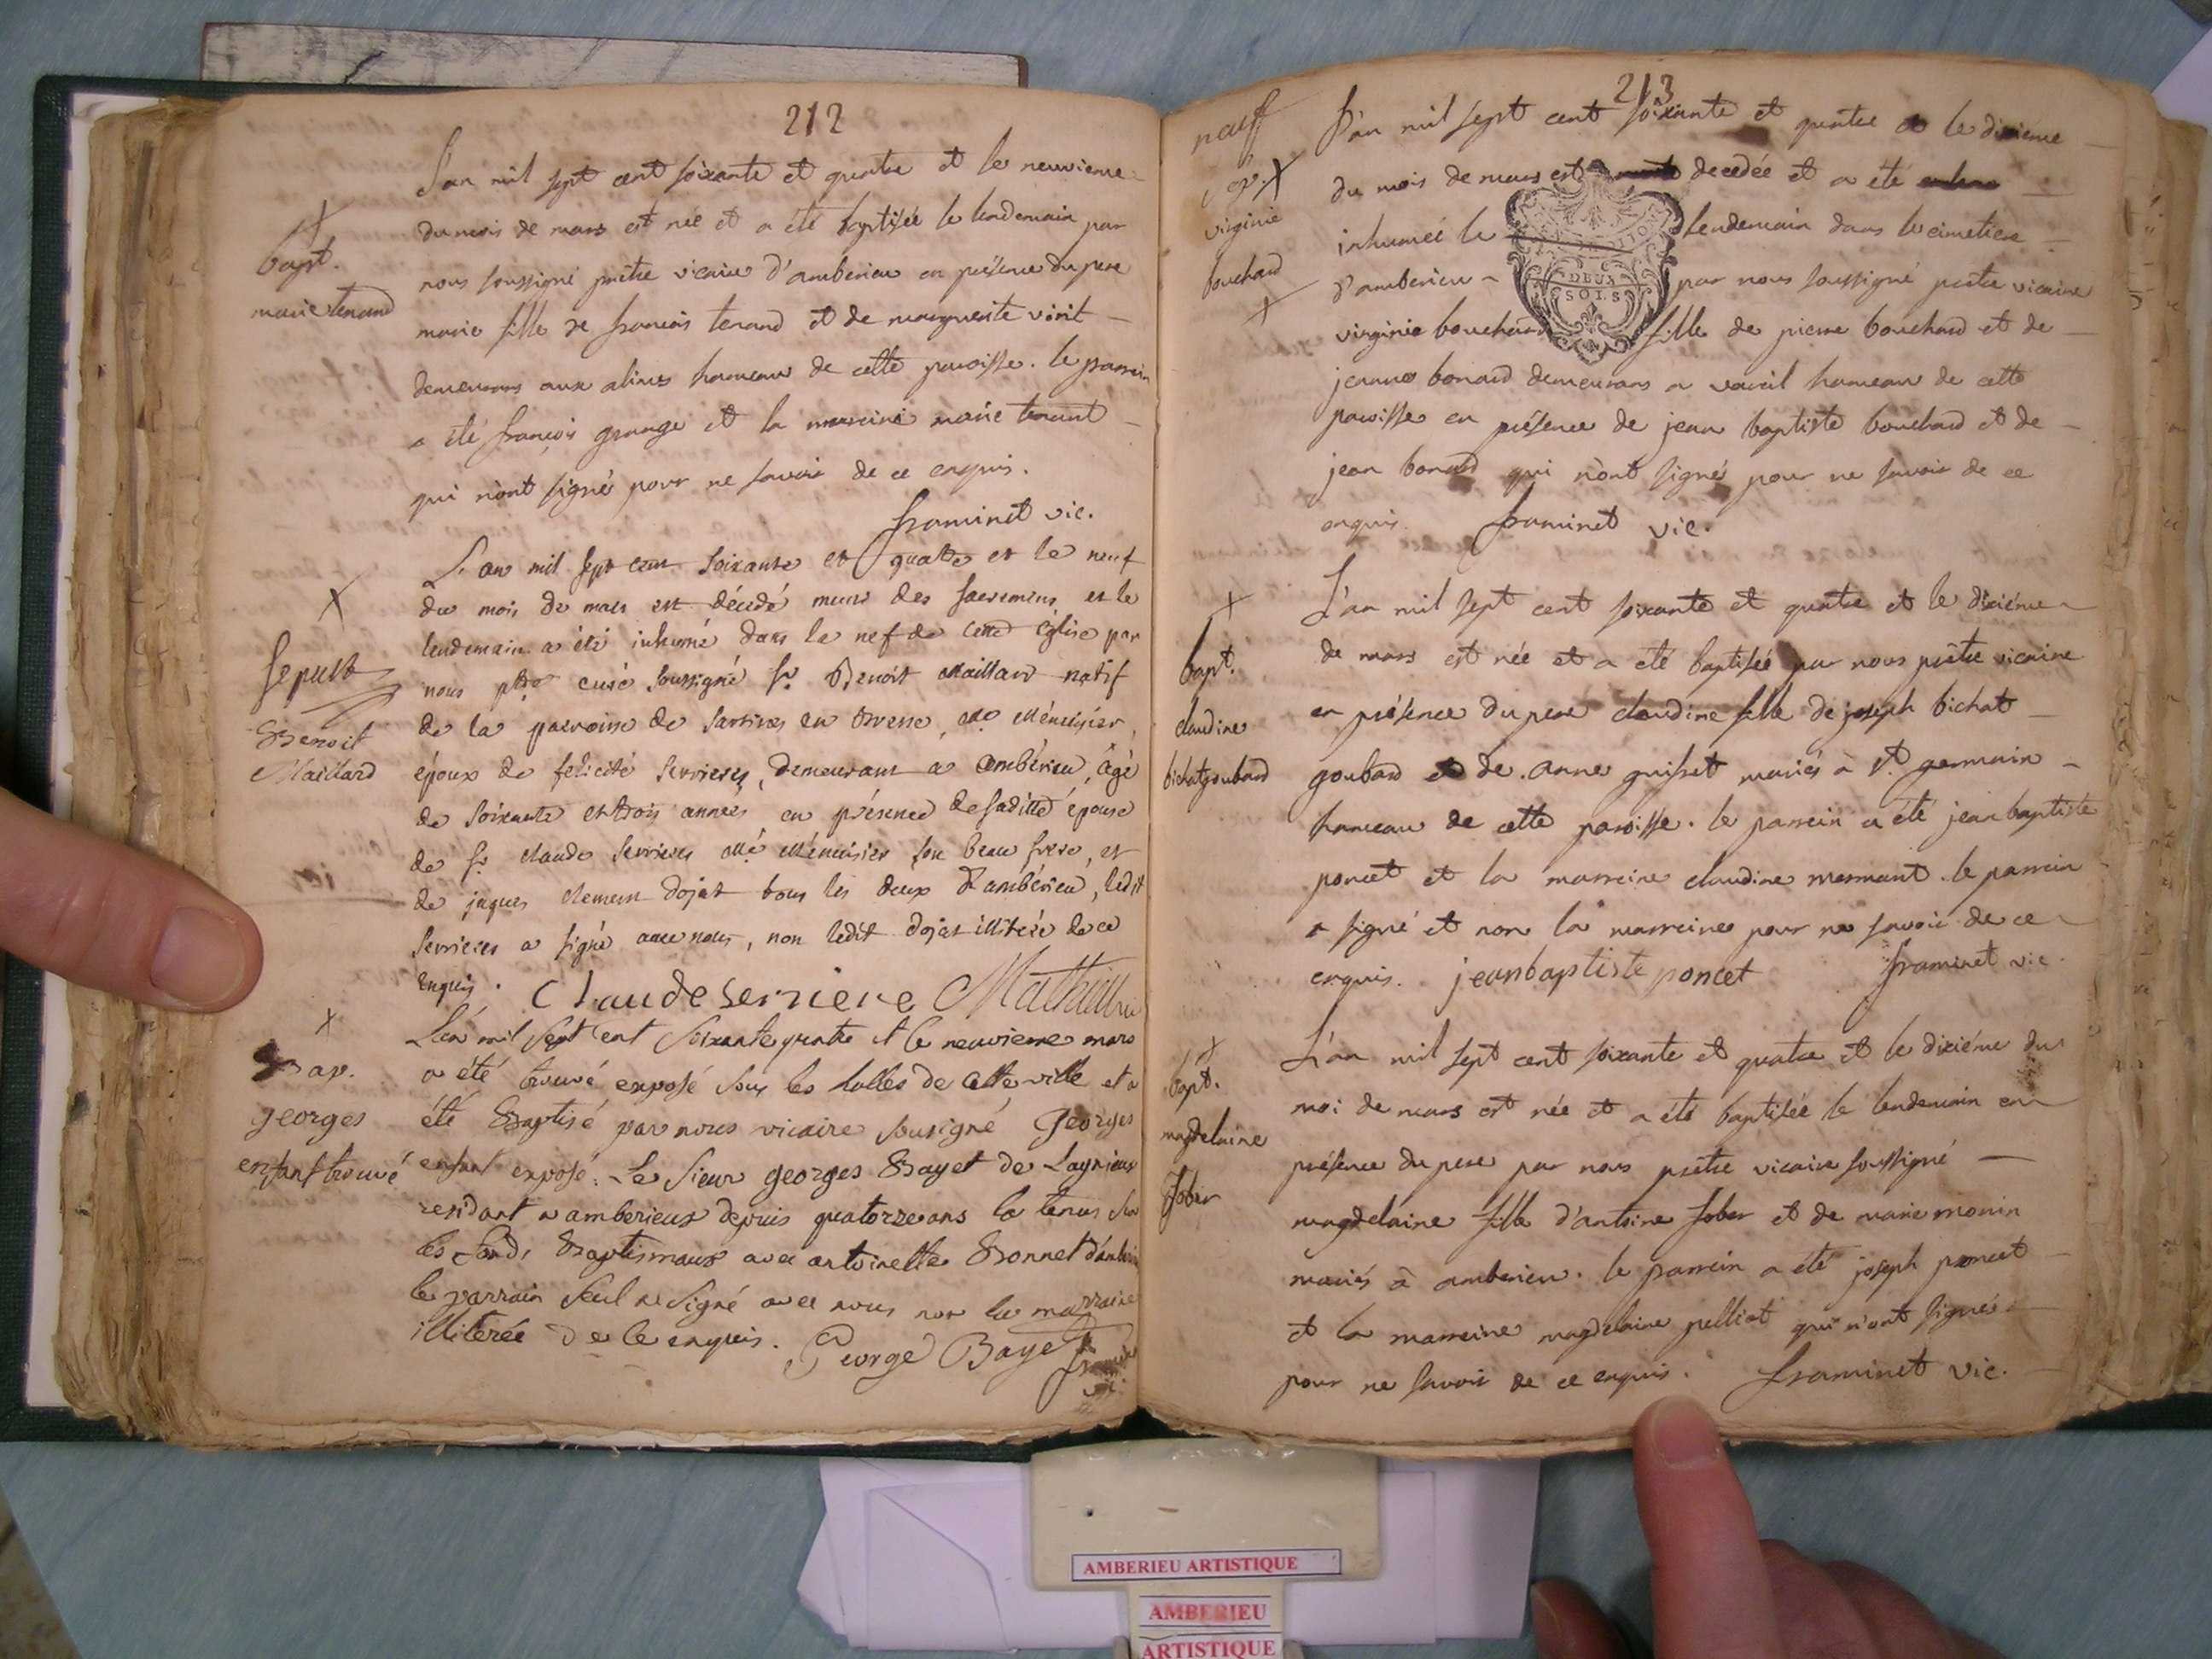 212
L'an mil sept cent soixante et quatre et le neuvieme
du mois de mars est née et a été baptisée le lendemain par
nous soussigné prêtre vicaire d'amberieu en présence du pere
marie fille de francois tenand et de marguerite
demeurans aux alimes hameau de cette paroisse. le parrein
a été françois grange et la marreine marie tenant
qui n'ont signé pour ne savoir de ce enquis.
framinet vic.
X
bapt.
marie tenand
L'an mil sept cent soixante et quatre et le neuf
du mois de mars est décédé muni des sacremens et le
lendemain a été inhumé dans la nef de cette église par
nous ptre curé soussigné sr. Benoit Maillard natif
de la paroisse de en Bresse, me Menuisier,
époux de felicité Serrieres, demeurant a Ambérieu, âgé
de soixante et trois années en présence de saditte épouse
de sr. claude Serrieres me Menuisier son beau frere, et
de jaques clement dojat tous les deux d'ambérieu, ledit
Serrieres a signé avec nous, non ledit dojat illiteré de ce
enquis. Claude Serriere
X
sepult
Benoit
Maillard
L'an mil sept cent soixante quatre et le neuvieme mars
a été trouvé exposé sous les halles de cette ville et a
été Baptisé par nous vicaire sousigné Georges
enfant exposé. Le sieur georges Bayet de Lagnieux
residant a amberieux depuis quatorze ans la tenus sur
les fonds Baptismaux avec antoinette Bonnet
le parrain seul a signé avec nous non la marraine
illiterée de ce enquis. George Bayet
vic.
X
Bap.
georges
enfant trouvé
213
L'an mil sept cent soixante et quatre et le dixiéme
du mois de mars est decedée et a été
inhumée le lendemain dans le cimetiere
d'amberieu par nous soussigné prêtre vicaire
virginie bouchard fille de pierre bouchard et de
jeanne bonard demeurans a vareil hameau de cette
paroisse en présence de jean baptiste bouchard et de
jean bonard qui n'ont signés pour ne savoir de ce
enquis. framinet vic.
DEUX
SOLS
neuf
sep. X
virginie
bouchard
X
L'an mil sept cent soixante et quatre et le dixiéme
de mars est née et a été baptisée par nous prêtre vicaire
en présence du pere claudine fille de joseph bichat
goubard et de anne grisset mariés à st. germain
hameau de cette paroisse. le parrein a été jean baptiste
poncet et la marreine claudine mermant. le parrein
a signé et non la marreine pour ne savoir de ce
enquis. jeanbaptiste poncet framinet vic.
X
bapt.
claudine
bichatgoubard
L'an mil sept cent soixante et quatre et le dixiéme du
moi de mars est née et a été baptisée le lendemain en
présence du pere par nous prêtre vicaire soussigné
magdelaine fille d'antoine jober et de marie monin
mariés à amberieu. le parrein a été joseph poncet
et la marreine magdelaine pelliat qui n'ont signés
pour ne savoir de ce enquis. framinet vic.
X
bapt.
magdelaine
jober
AMBERIEU ARTISTIQUE
AMBERIEU
ARTISTIQUE